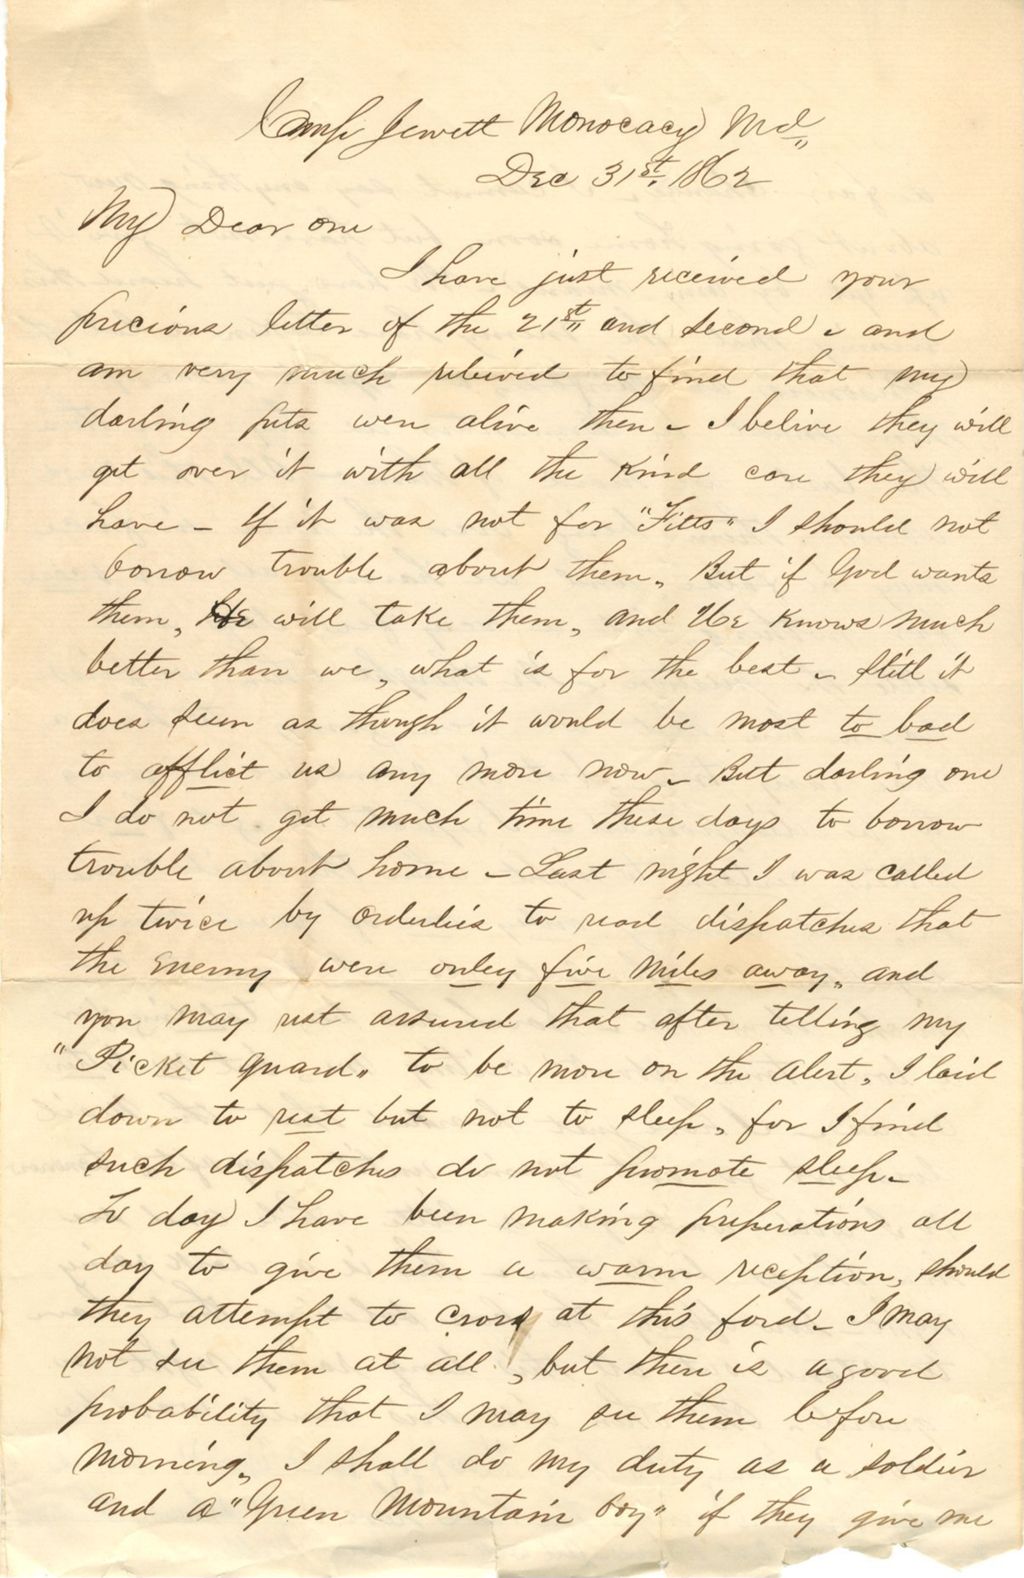 Camp Jewett Monocacy Md
Dec 31st, 1862
My Dear one
I have just received your
precious letter of the 21st and second - and
am very much releived to find that my
darling pets were alive then - I belive they will
get over it with all the kind care they will
have - If it was not for "Fitts" I should not
borrow trouble about them, But if God wants
them, He will take them, and He knows much
better than we, what is for the best - Still it
does seem as though it would be most to bad
to afflict us any more now - But darling one
I do not get much time these days to borrow
trouble about home - Last night I was called
up twice by orderlies to read dispatches that
the Enemy were only five miles away, and
you may rest assured that after telling my
"Picket guard" to be more on the alert, I laid
down to rest but not to sleep, for I find
such dispatches do not promote sleep -
To day I have been making preperations all
day to give them a warm reception, should
they attempt to cross at this ford - I may
not see them at all, but there is a good
probability that I may see them before
morning, I shall do my duty as a soldier
and a "Green Mountain boy" if they give me